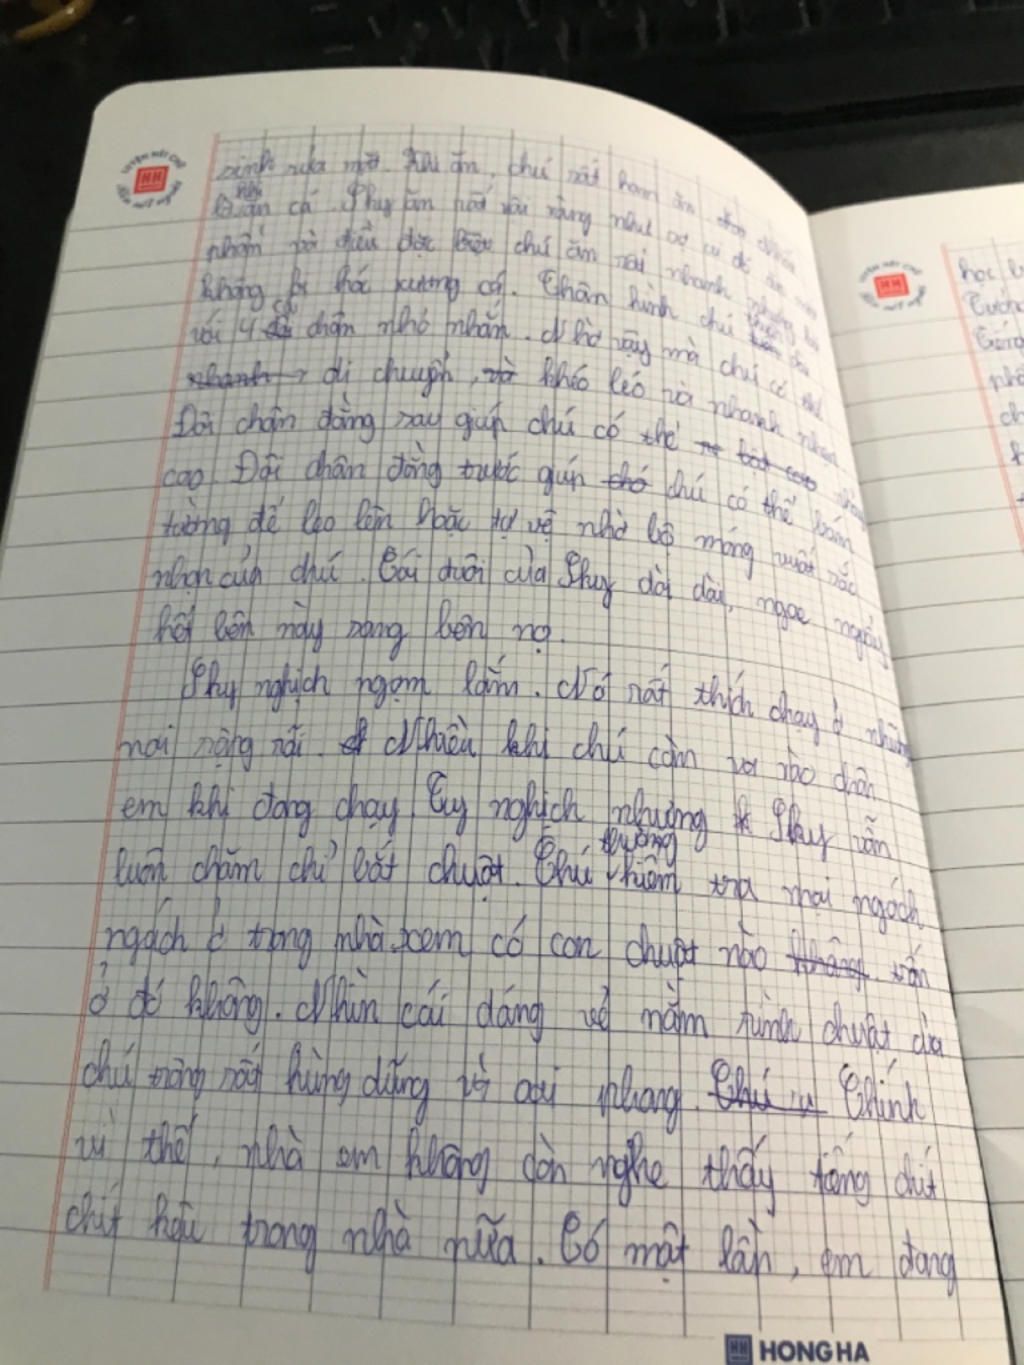 xinh rửa mặt. Khi ăn, chú rất ham ăn
khi ăn cá. Shy ăn rất vội vàng như sợ ai đó ăn mất
phần và điều đặc biệt chú ăn rất nhanh nhưng
không bị hóc xương cá. Thân hình chú thon
với 4 cái chân nhỏ nhắn. Nhờ vậy mà chú có thể
nhanh di chuyển, và khéo léo và nhanh nhẹn
Đôi chân đằng sau giúp chú có thể bật cao nhảy
cao. Đôi chân đằng trước giúp chó chú có thể bám
tường để leo lên hoặc tự vệ nhờ bộ móng vuốt sắc
nhọn của chú. Cái đuôi của Shy dài dài, ngoe nguẩy
hết bên này sang bên nọ.
Shy nghịch ngợm lắm. Nó rất thích chạy ở những
nơi rộng rãi. Nhiều khi chú còn va vào chân
em khi đang chạy. Tuy nghịch nhưng Shy vẫn
luôn chăm chỉ bắt chuột. Chú thường kiểm tra mọi ngóch
ngách ở trong nhà xem có con chuột nào không vẫn
ở đó không. Nhìn cái dáng vẻ nằm rình chuột của
chú trông rất hùng dũng và oai phong. Chú Chính
vì thế, nhà em không còn nghe thấy tiếng chít
chít hậu trong nhà nữa. Có một lần, em đang
học
HONG HA